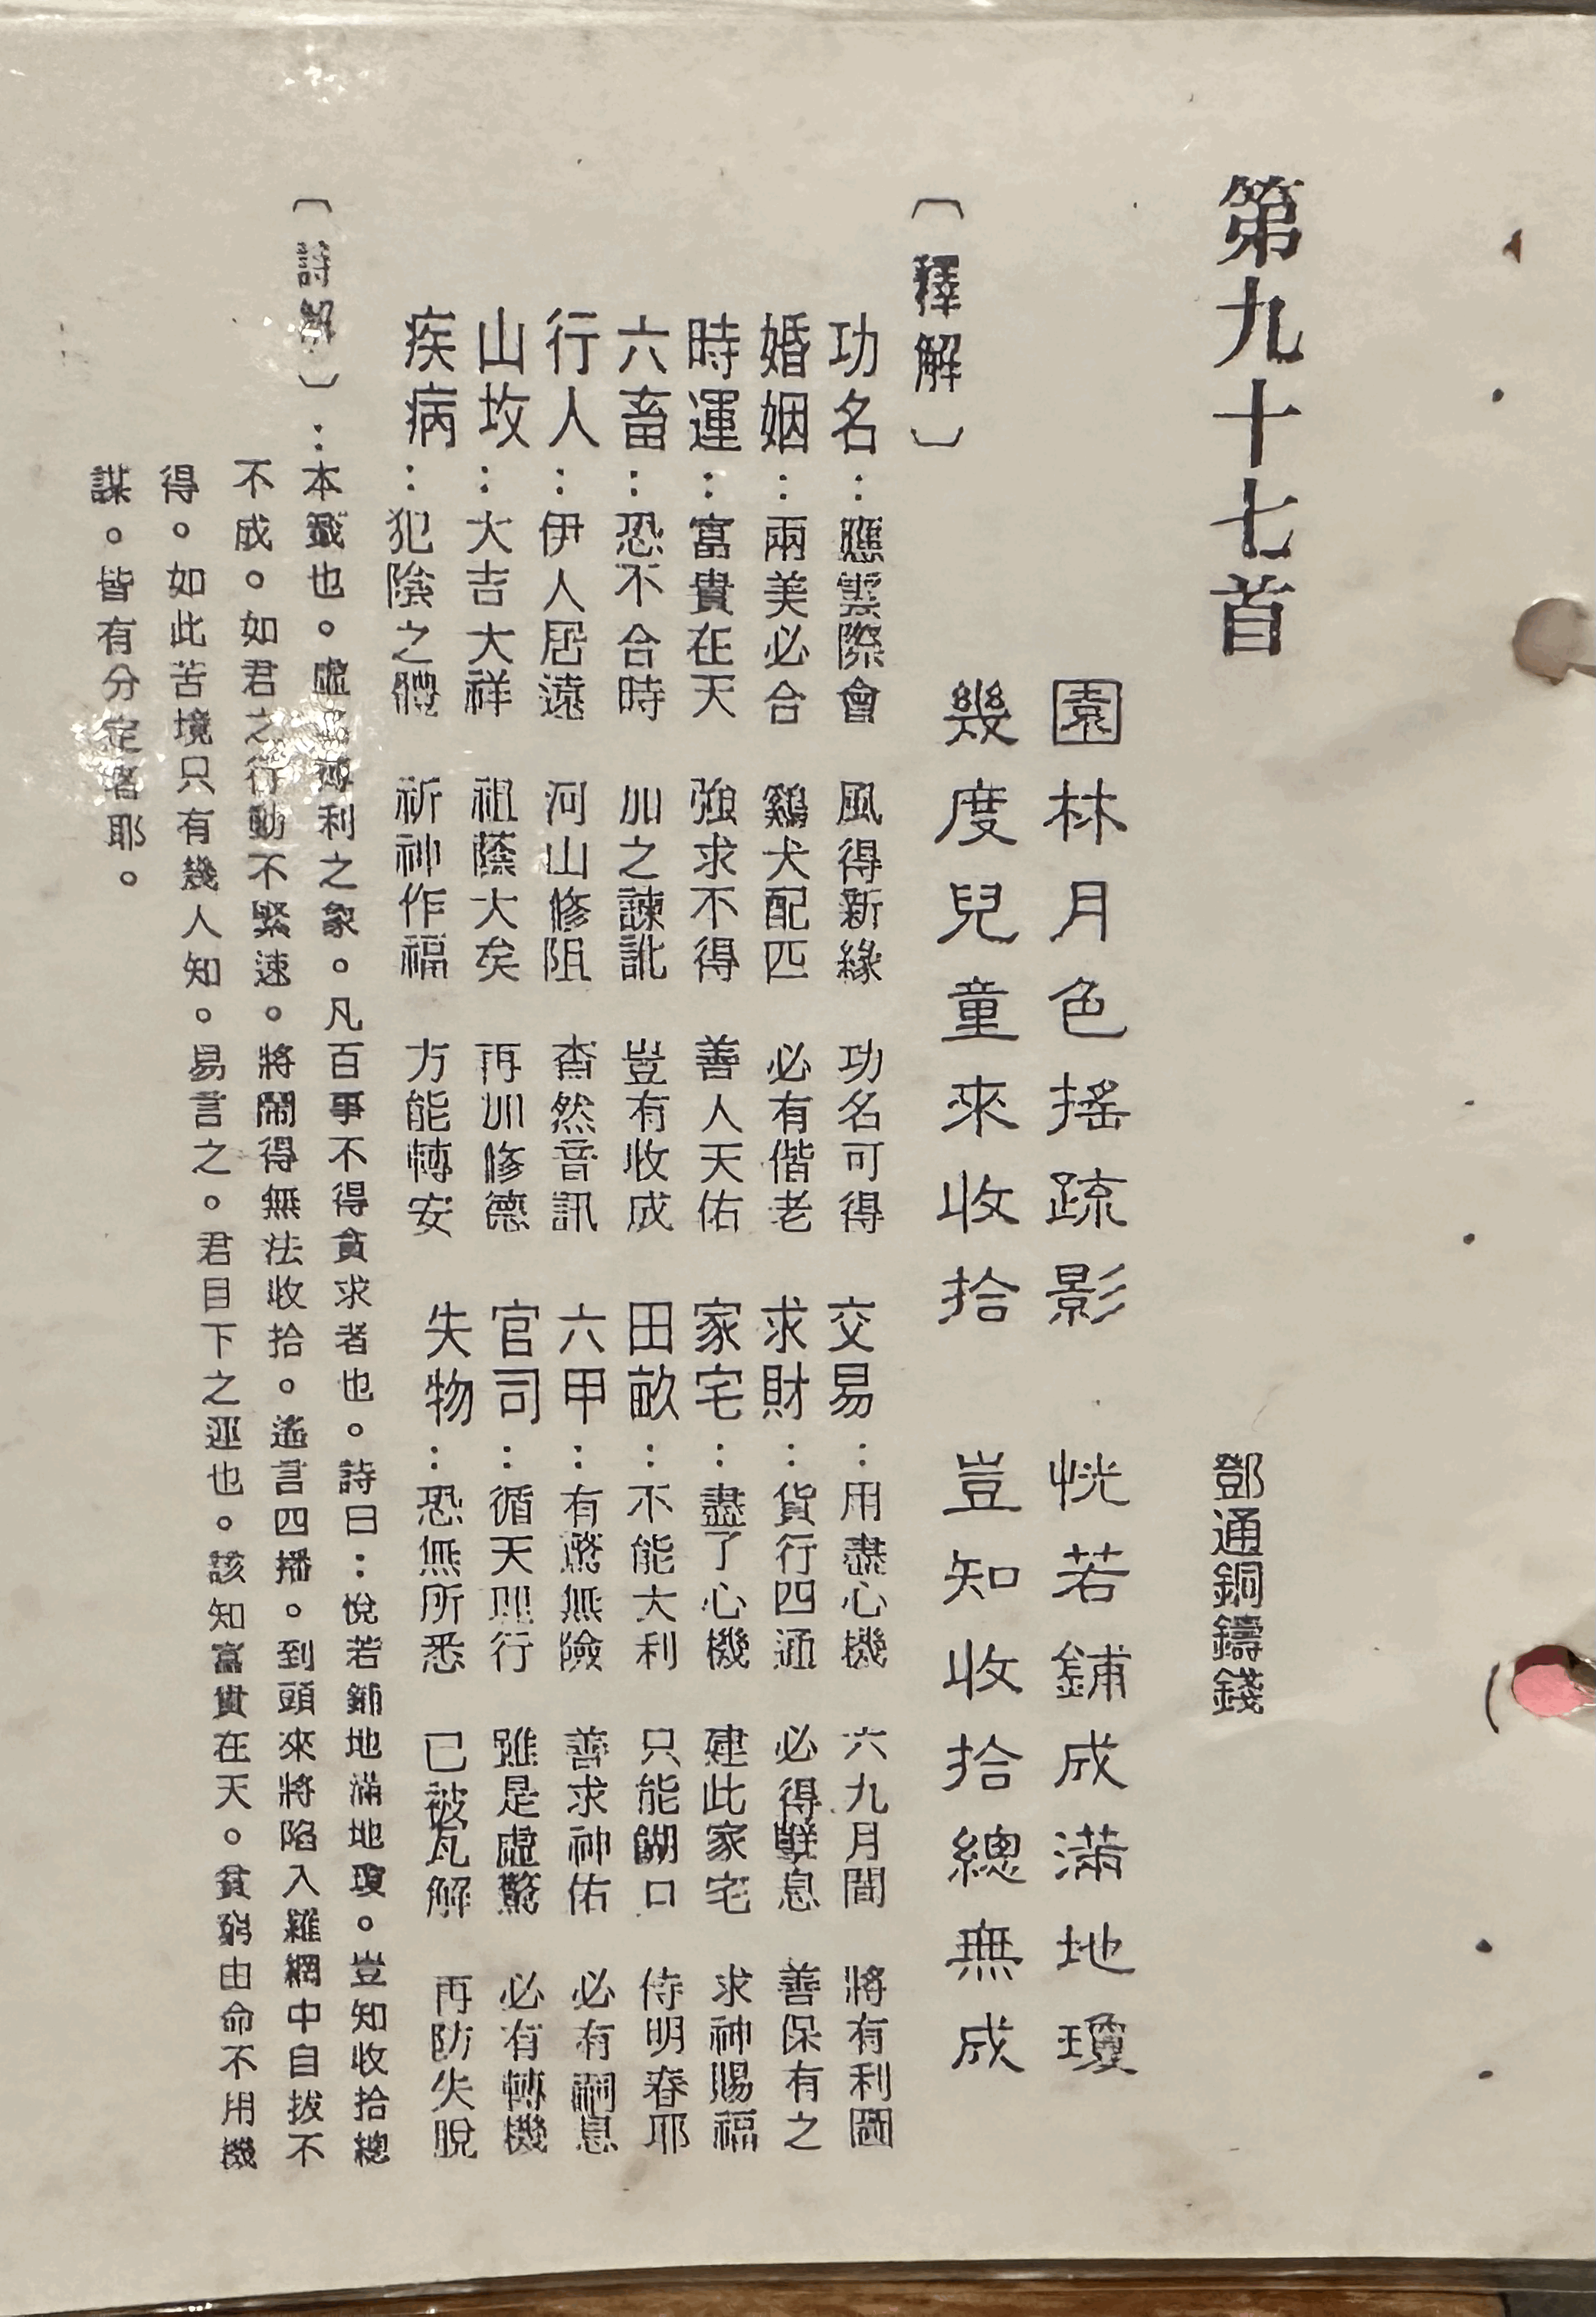 第九十七首
鄧通銅鑄錢
園林月色搖疏影 恍若鋪成滿地瓊
幾度兒童來收拾 豈知收拾總無成
〔釋解〕
功名：應雲際會 風得新緣 功名可得
交易：用盡心機 六九月間 將有利圖
婚姻：兩美必合 鷄犬配匹 必有偕老
求財：貨行四通 必得 息 善保有之
時運：富貴在天 強求不得 善人天佑
家宅：盡了心機 建此家宅 求神賜福
六畜：恐不合時 加之諫訛 豈有收成
田畝：不能大利 只能餬口 侍明春耶
行人：伊人居遠 河山修阻 杳然音訊
六甲：有驚無險 善求神佑 必有嗣息
山坟：大吉大祥 祖蔭大矣 再加修德
官司：循天則行 雖是虛驚 必有轉機
疾病：犯陰之體 祈神作福 方能轉安
失物：恐無所悉 已被瓦解 再防失脫
〔詩解〕：本籤也。虛 利之象。凡百事不得貪求者也。詩曰：悅若鋪地滿地瓊。豈知收拾總
不成。如君之行動不緊速。將鬧得無法收拾。遙言四播。到頭來將陷入羅網中自拔不
得。如此苦境只有幾人知。易言之。君目下之運也。該知富貴在天。貧窮由命不用機
謀。皆有分定 耶。